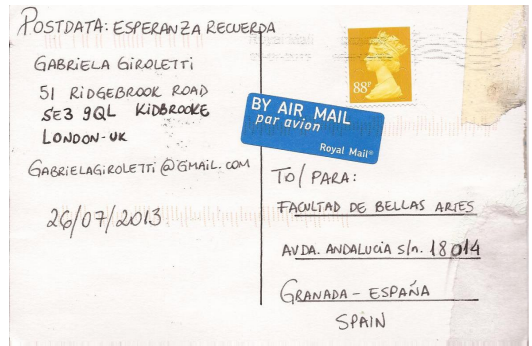 POSTDATA: ESPERANZA RECUERDA
GABRIELA GIROLETTI
51 RIDGEBROOK ROAD
SE3 9QL KIDBROOKE
LONDON-UK
GABRIELAGIROLETTI@GMAIL.COM
26/07/2013
Royal Mail
88P
BY AIR MAIL
par avion
Royal Mail®
TO/PARA:
FACULTAD DE BELLAS ARTES
AVDA. ANDALUCIA s/n. 18014
GRANADA - ESPAÑA
SPAIN